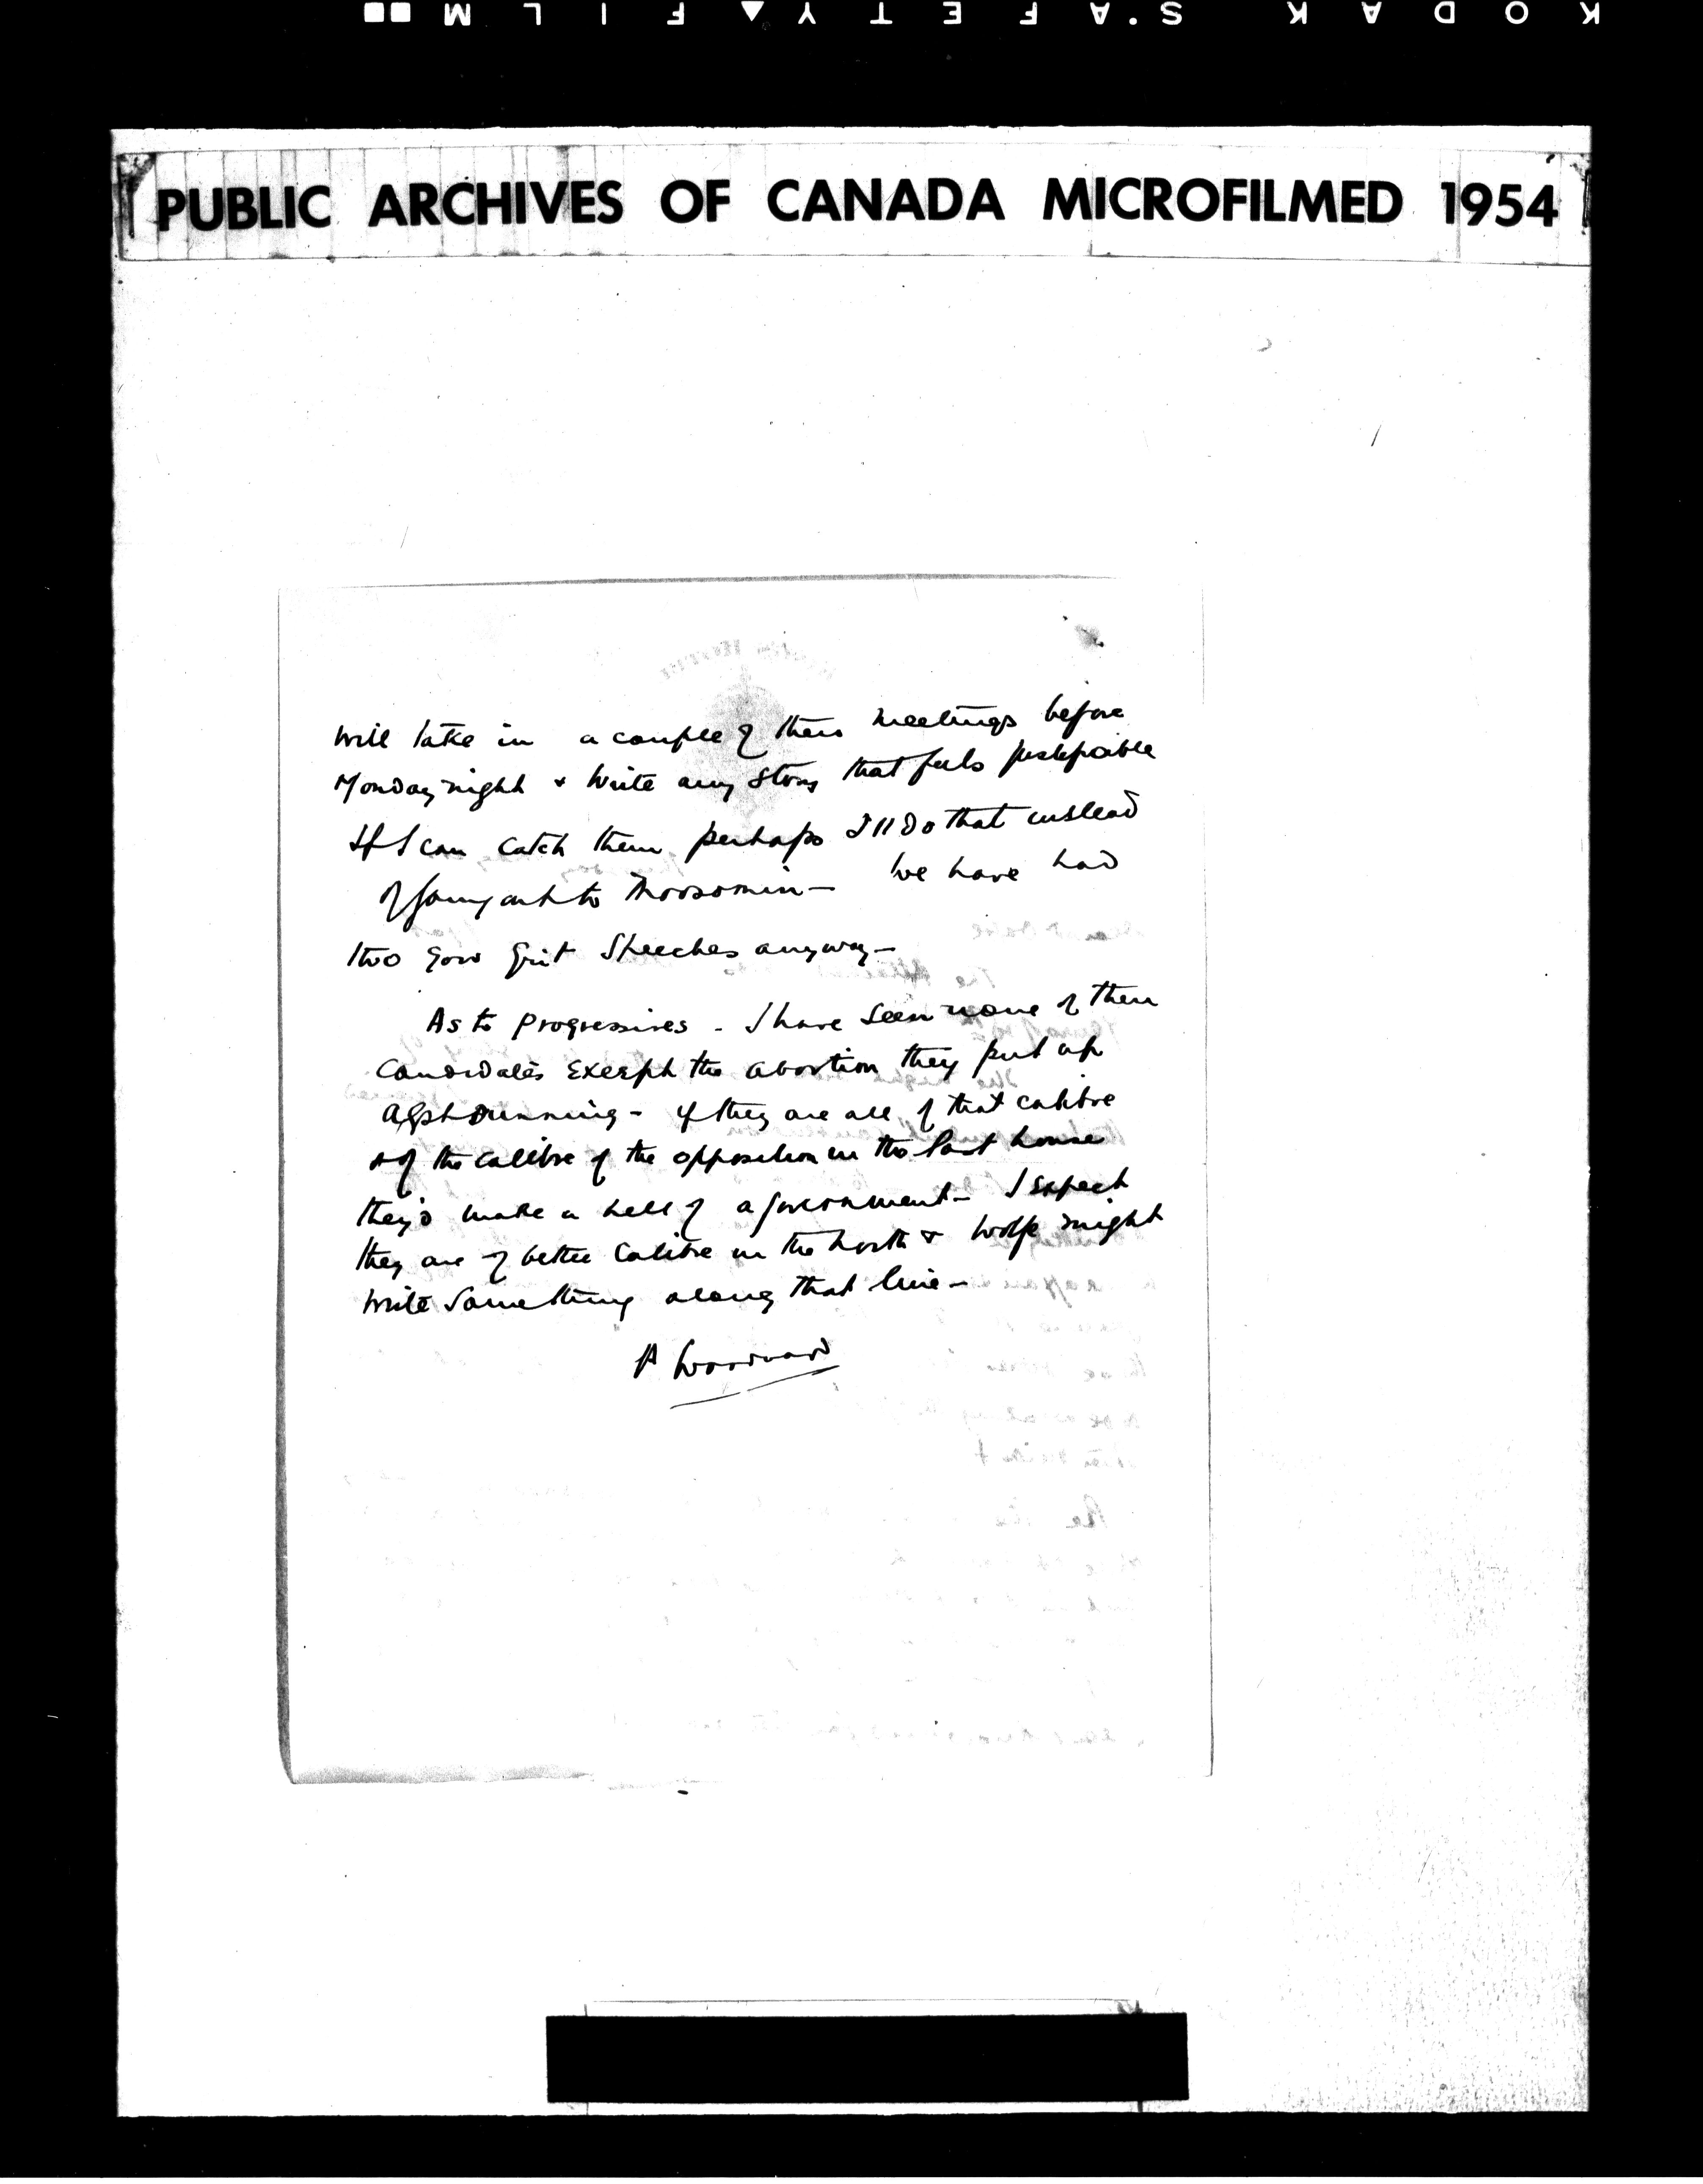 KODAK SAFETY FILM
PUBLIC ARCHIVES OF CANADA MICROFILMED 1954
will take in a couple of their meetings before
Monday night & write any story that feels justifiable
If I can catch them perhaps I'll do that instead
of going out to Moosomin - We have had
two Gov Grit speeches anyway -
As to Progressives - I have seen none of their
candidates except the abortion they put up
agst Dunning - If they are all of that calibre
& of the calibre of the opposition in the last house
they'd make a hell of a government - I expect
they are of better calibre in the north & Wolfe might
write something along that line -
Woodward